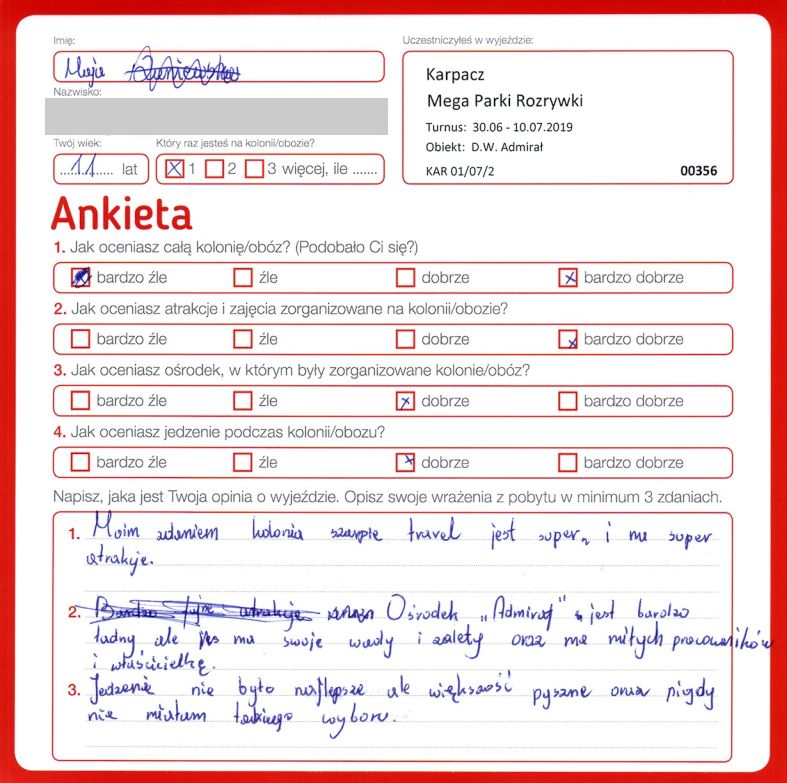 Imię:
Uczestniczyłeś w wyjeździe:
Maja
Karpacz
Mega Parki Rozrywki
Nazwisko:
Turnus: 30.06 - 10.07.2019
Obiekt: D.W. Admirał
KAR 01/07/2 00356
Twój wiek: Który raz jesteś na kolonii/obozie?
....11..... lat 1 2 3 więcej, ile .......
Ankieta
1. Jak oceniasz całą kolonię/obóz? (Podobało Ci się?)
bardzo źle źle dobrze bardzo dobrze
2. Jak oceniasz atrakcje i zajęcia zorganizowane na kolonii/obozie?
bardzo źle źle dobrze bardzo dobrze
3. Jak oceniasz ośrodek, w którym były zorganizowane kolonie/obóz?
bardzo źle źle dobrze bardzo dobrze
4. Jak oceniasz jedzenie podczas kolonii/obozu?
bardzo źle źle dobrze bardzo dobrze
Napisz, jaka jest Twoja opinia o wyjeździe. Opisz swoje wrażenia z pobytu w minimum 3 zdaniach.
1. Moim zdaniem kolonia szarpie travel jest super i ma super
atrakcje.
2. Bardzo fajne atrakcje Ośrodek „Admirał” jest bardzo
ładny ale ma swoje wady i zalety oraz ma miłych pracowników
i właścicielkę.
3. Jedzenie nie było najlepsze ale większość pyszne oraz nigdy
nie miałam takiego wyboru.